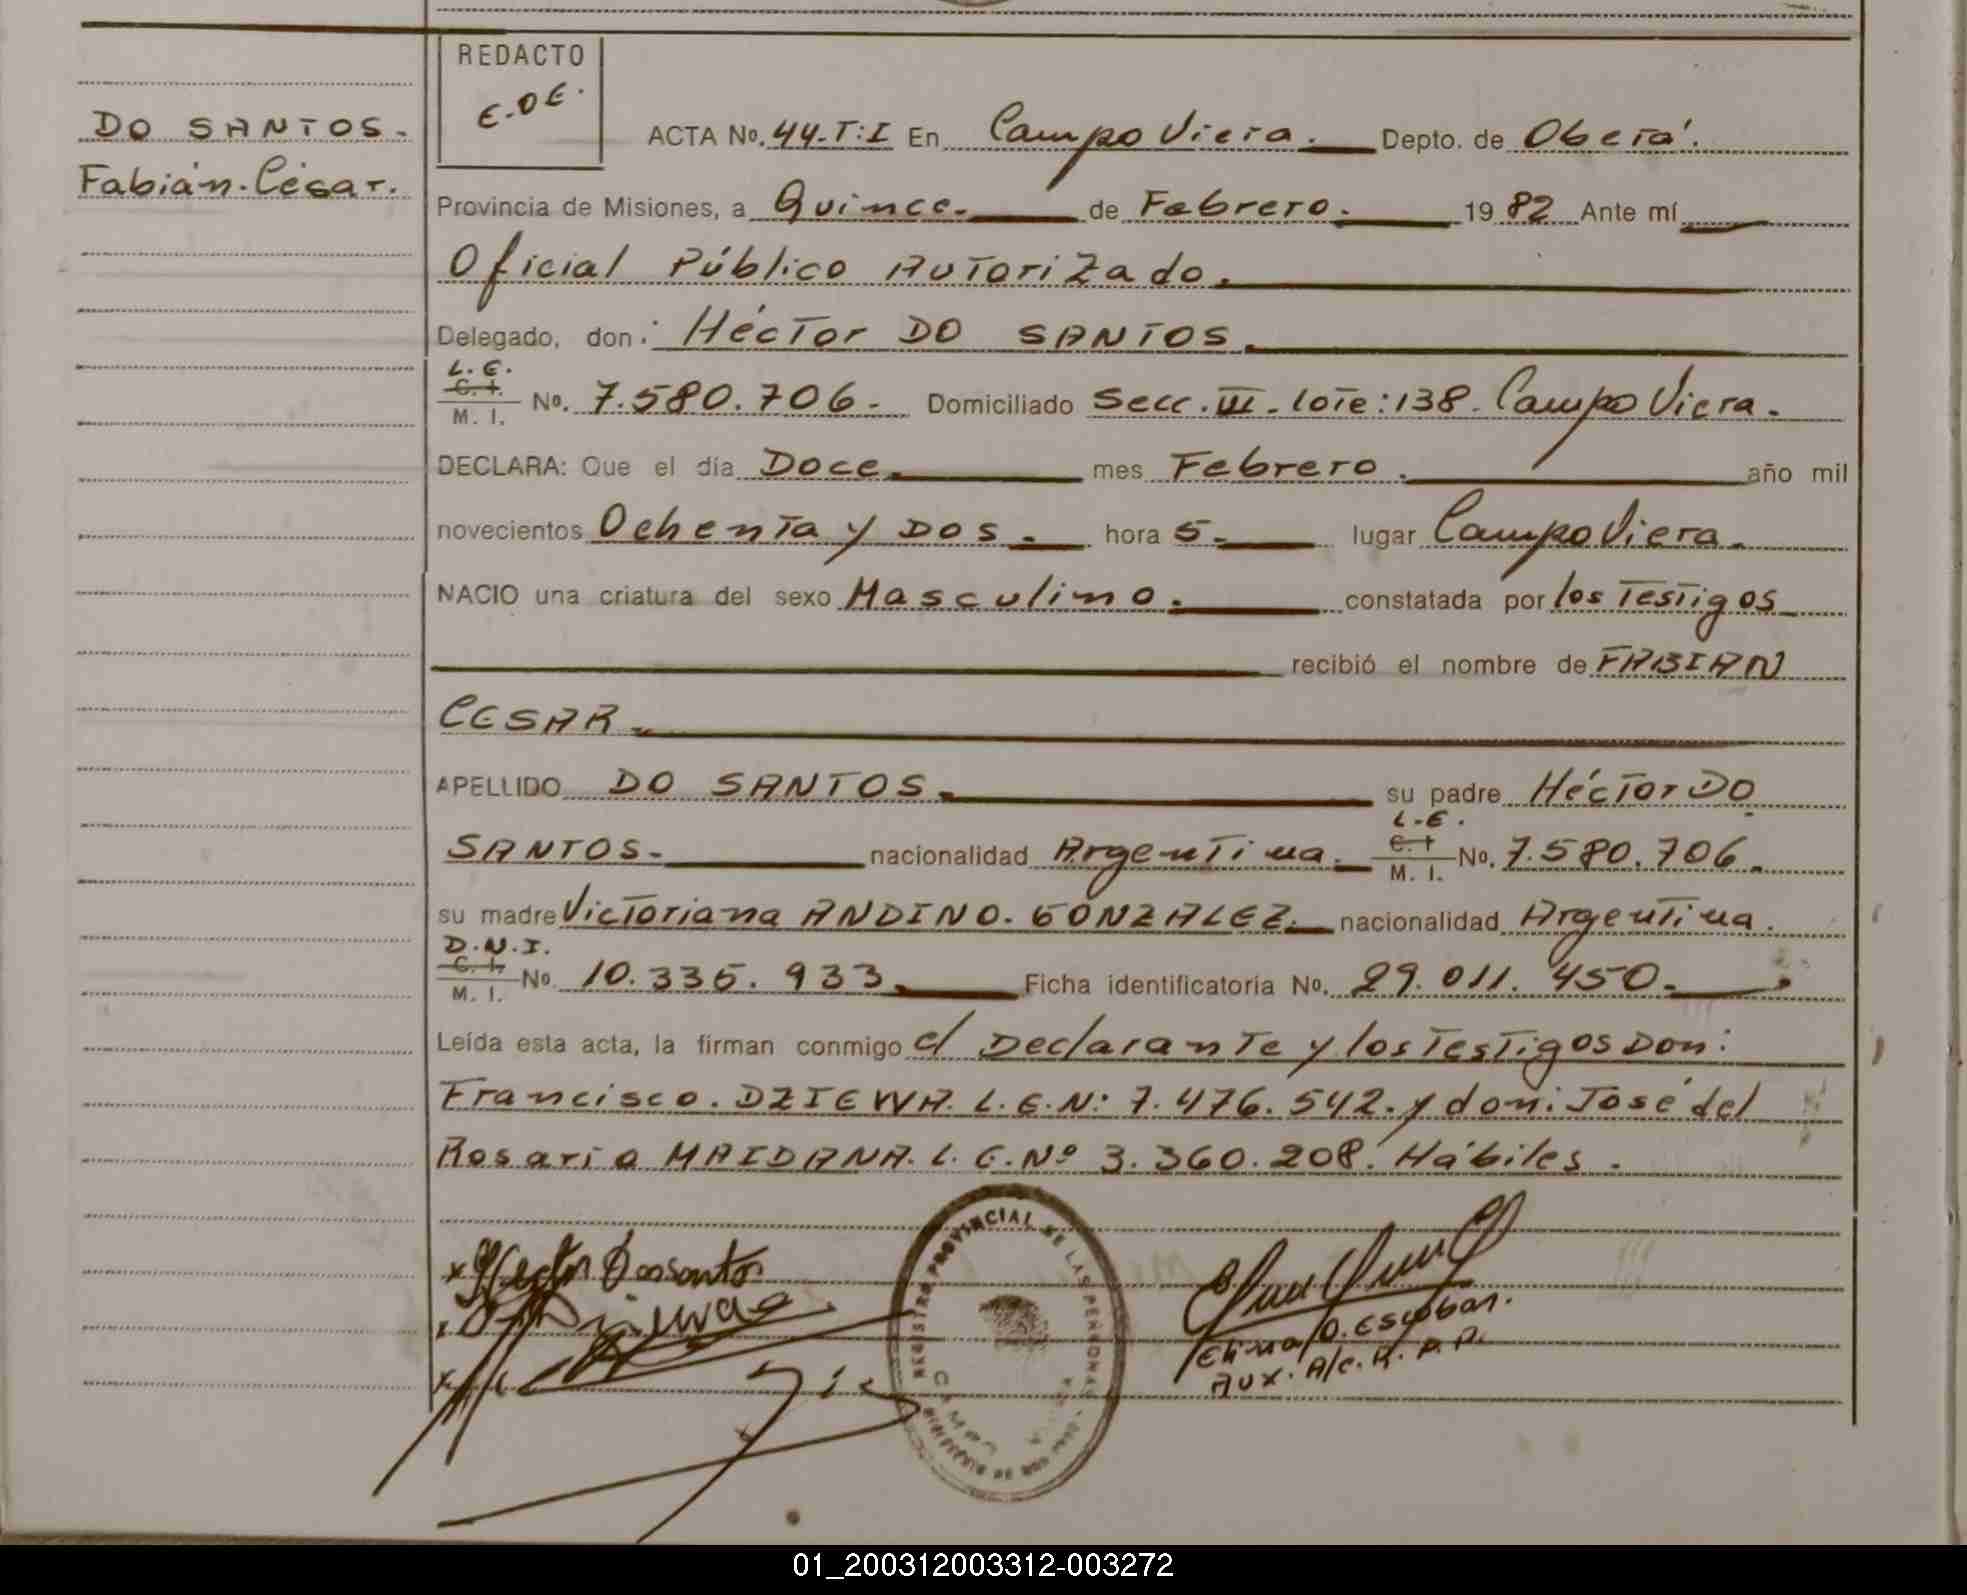 REDACTO
E.O.E.
DO SANTOS.
Fabián. César.
ACTA No. 44-T:I En Campo Viera. Depto. de Oberá.
Provincia de Misiones, a Quince. de Febrero. 19 82 Ante mí
Oficial Público Autorizado.
Delegado, don: Héctor DO SANTOS.
L.E.
C. I.
M. I. No. 7.580.706. Domiciliado Secc. III. lote: 138. Campo Viera.
DECLARA: Que el día Doce. mes Febrero. año mil
novecientos Ochenta y Dos. hora 5. lugar Campo Viera.
NACIO una criatura del sexo Masculino. constatada por los Testigos
recibió el nombre de FABIAN
CESAR.
APELLIDO DO SANTOS. su padre Héctor DO
L.E.
SANTOS. nacionalidad Argentina. C. I. M. I. No. 7.580.706.
su madre Victoriana ANDINO. GONZALEZ. nacionalidad Argentina.
D.N.I.
C. I.
M. I. No. 10.335.933. Ficha identificatoria No. 29.011.450.
Leída esta acta, la firman conmigo el Declarante y los Testigos Don:
Francisco. DZIEWA. L.E.N: 7.476.542. y don: José del
Rosario MAIDANA. L.E.Nº 3.360.208. Hábiles.
x Hector Dosantos
REGISTRO PROVINCIAL DE LAS PERSONAS
CAMPO
Elina O. Escobar.
Aux. A/c. R. P. P.
01_200312003312-003272